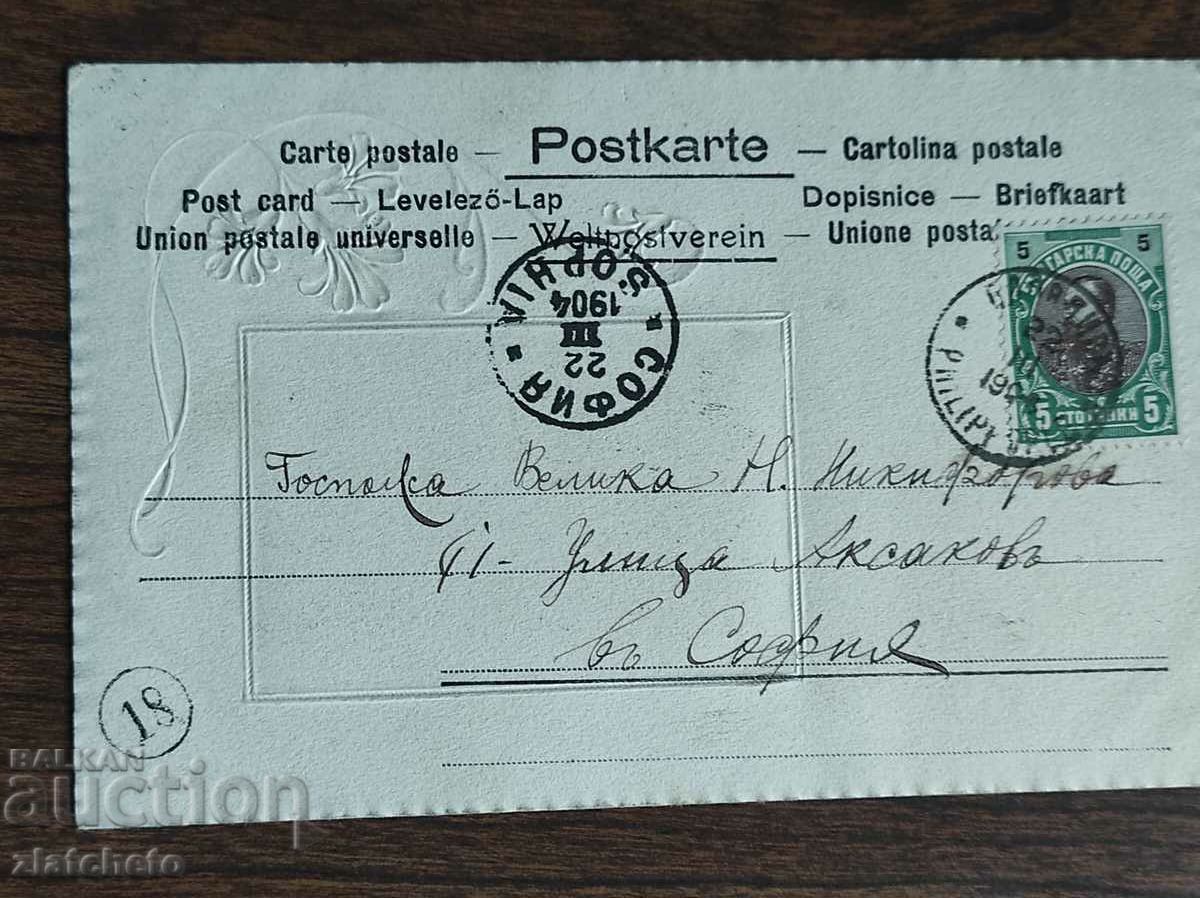 Carte postale — Postkarte — Cartolina postale
Post card — Levelező-Lap Dopisnice — Briefkaart
Union postale universelle — Weltpostverein — Unione posta
5 5
ГАРСКА ПОЩА
5 СТОТИНКИ 5
22 III 1904
PHILIPP
СОФИЯ
22
III
1904
S.OPHIA
Госпожа Велика Н. Никифорова
41 - Улица Аксаковъ
въ София
18
BALKAN
auction
zlatcheto